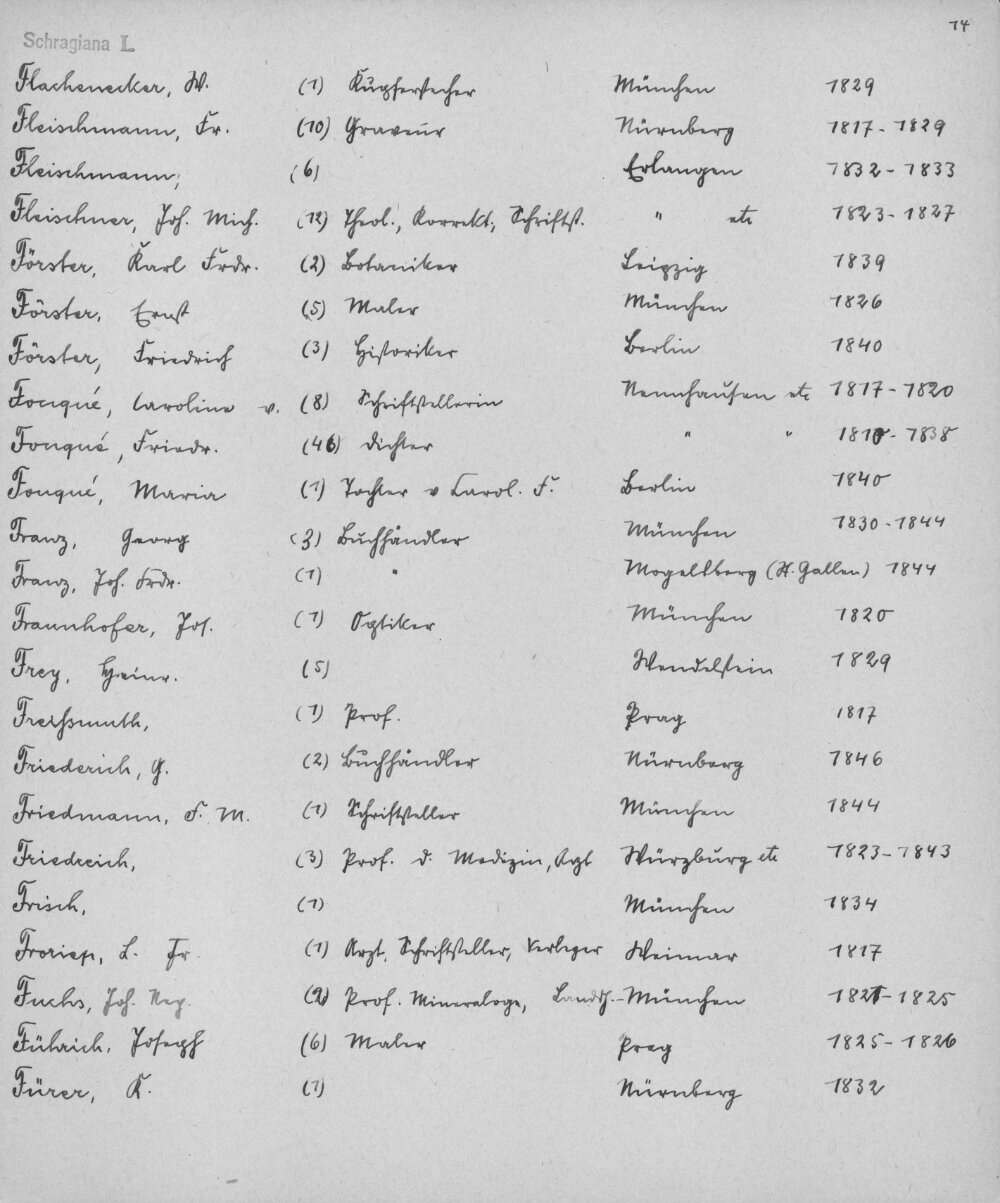 14
Schragiana L
Flachenecker, W. (1) Kupferstecher München 1829
Fleischmann, Fr. (10) Graveur Nürnberg 1817-1829
Fleischmann, (6) Erlangen 1832-1833
Fleischner, Joh. Mich. (12) Theol., Korrekt., Schriftst. " etc 1823-1827
Förster, Karl Frdr. (2) Botaniker Leipzig 1839
Förster, Ernst (5) Maler München 1826
Förster, Friedrich (3) Historiker Berlin 1840
Fouqué, Caroline v. (8) Schriftstellerin Nennhausen etc 1817-1820
Fouqué, Friedr. (46) Dichter " " 1810-1838
Fouqué, Maria (1) Tochter v Carol. F. Berlin 1840
Franz, Georg (3) Buchhändler München 1830-1844
Franz, Joh. Frdr. (1) " Mogelsberg (St. Gallen) 1844
Fraunhofer, Jos. (1) Optiker München 1820
Frey, Heinr. (5) Wendelstein 1829
Freyßmuth, (1) Prof. Prag 1817
Friederich, G. (2) Buchhändler Nürnberg 1846
Friedmann, F. M. (1) Schriftsteller München 1844
Friedreich, (3) Prof. d. Medizin, Arzt Würzburg etc 1823-1843
Frisch, (1) München 1834
Froriep, L. Fr. (1) Arzt, Schriftsteller, Verleger Weimar 1817
Fuchs, Joh. Nep. (2) Prof. Mineraloge, Landsh.-München 1821-1825
Führich, Joseph (6) Maler Prag 1825-1826
Fürer, K. (1) Nürnberg 1832